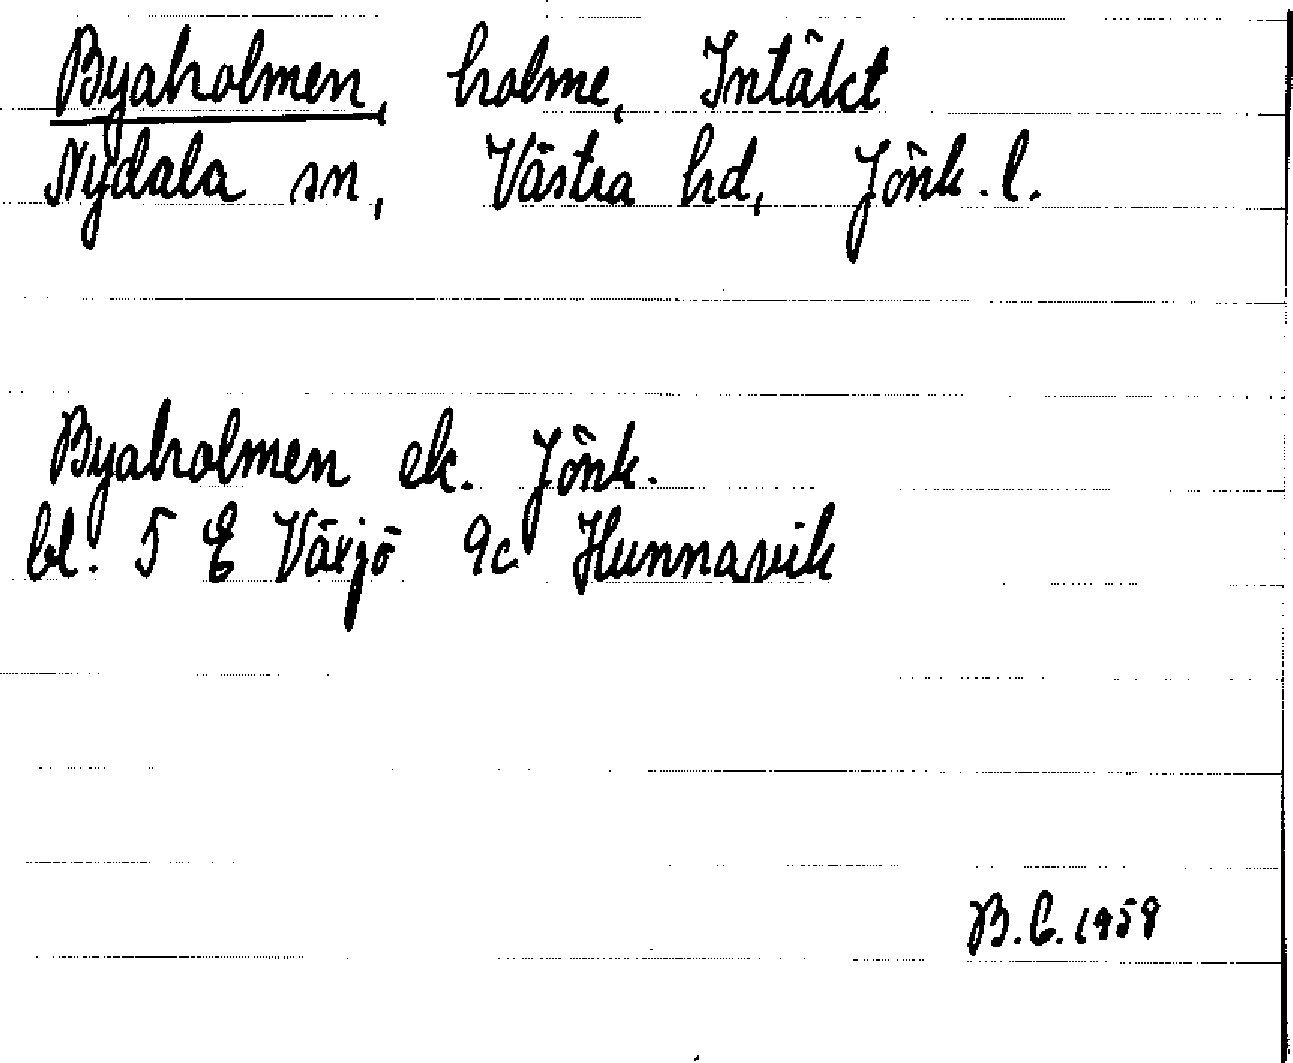 Byaholmen, holme, Intäkt
Nydala sn, Västra hd, Jönk. l.
Byaholmen ek. Jönk.
bl. 5 E Växjö 9c Hunnavik
B.C. 1959